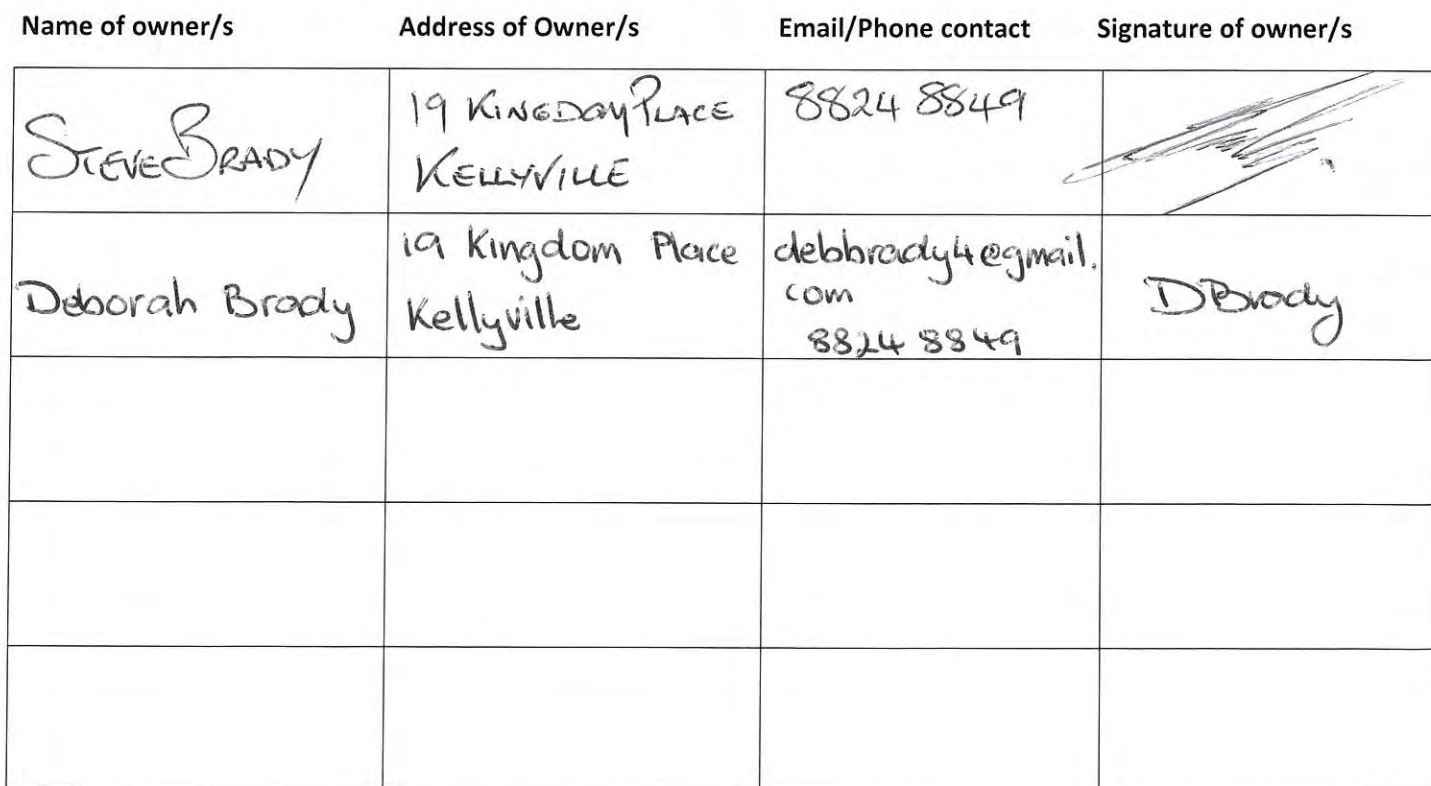 Name of owner/s Address of Owner/s Email/Phone contact Signature of owner/s
STEVE BRADY
19 KINGDOM PLACE
KELLYVILLE
8824 8849
Deborah Brady
19 Kingdom Place
Kellyville
debbrady4@gmail.
com
8824 8849
DBrady